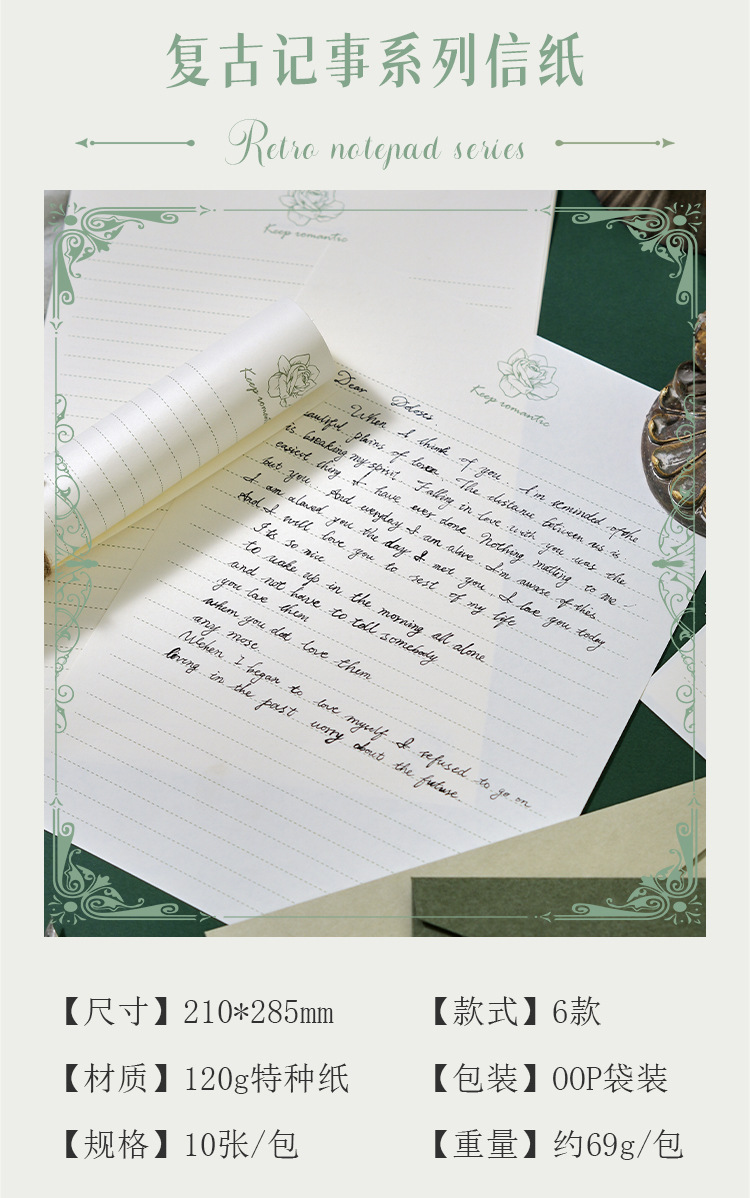 复古记事系列信纸
Retro notepad series
Keep romantic
Keep romantic
Keep roman
Dear Dolores.
When I think of you. I'm reminded of the
eautiful plains of The distance between us is
is breaking my spirit. Falling in love with you was the
easiest thing I have ever done. Nothing matting to me
but you. And everyday I am alive I'm aware of this.
I am alaved you the day I met you. I love you today
And I well love you to rest of my life
It's so nice
to wake up in the morning all alone
and not have to tell somebody
you love them
when you dot love them
any mose.
Wehen I began to love myself I refused to go on
loving in the past worry about the future.
【尺寸】210*285mm
【款式】6款
【材质】120g特种纸
【包装】OOP袋装
【规格】10张/包
【重量】约69g/包